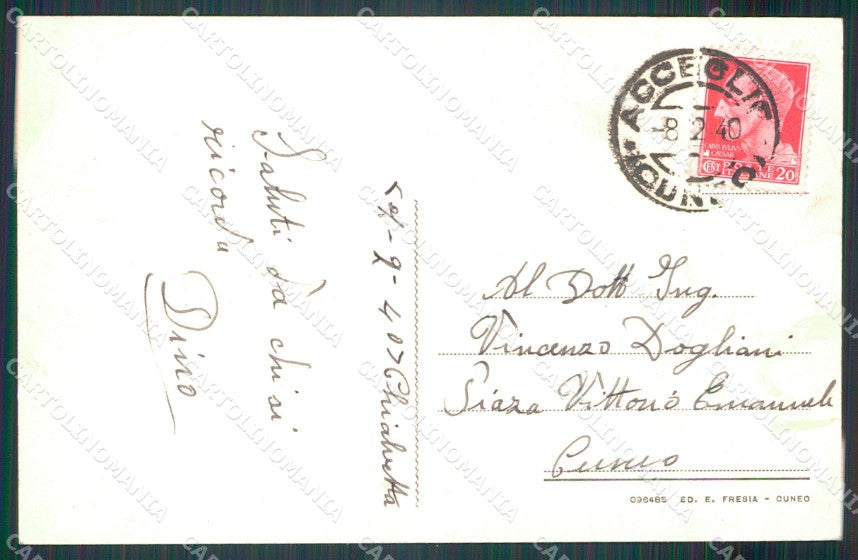 Saluti da chi si
ricorda
Dino
Chialvetta
ACCEGLIO
-8.2.40
CUNEO
CAIVS IVLIVS
CAESAR
CENT. POSTE 20
ITALIANE
Al Dott Ing.
Vincenzo Dogliani
Piazza Vittorio Emanuele
Cuneo
096485 ED. E. FRESIA - CUNEO
CARTOLINOMANIA